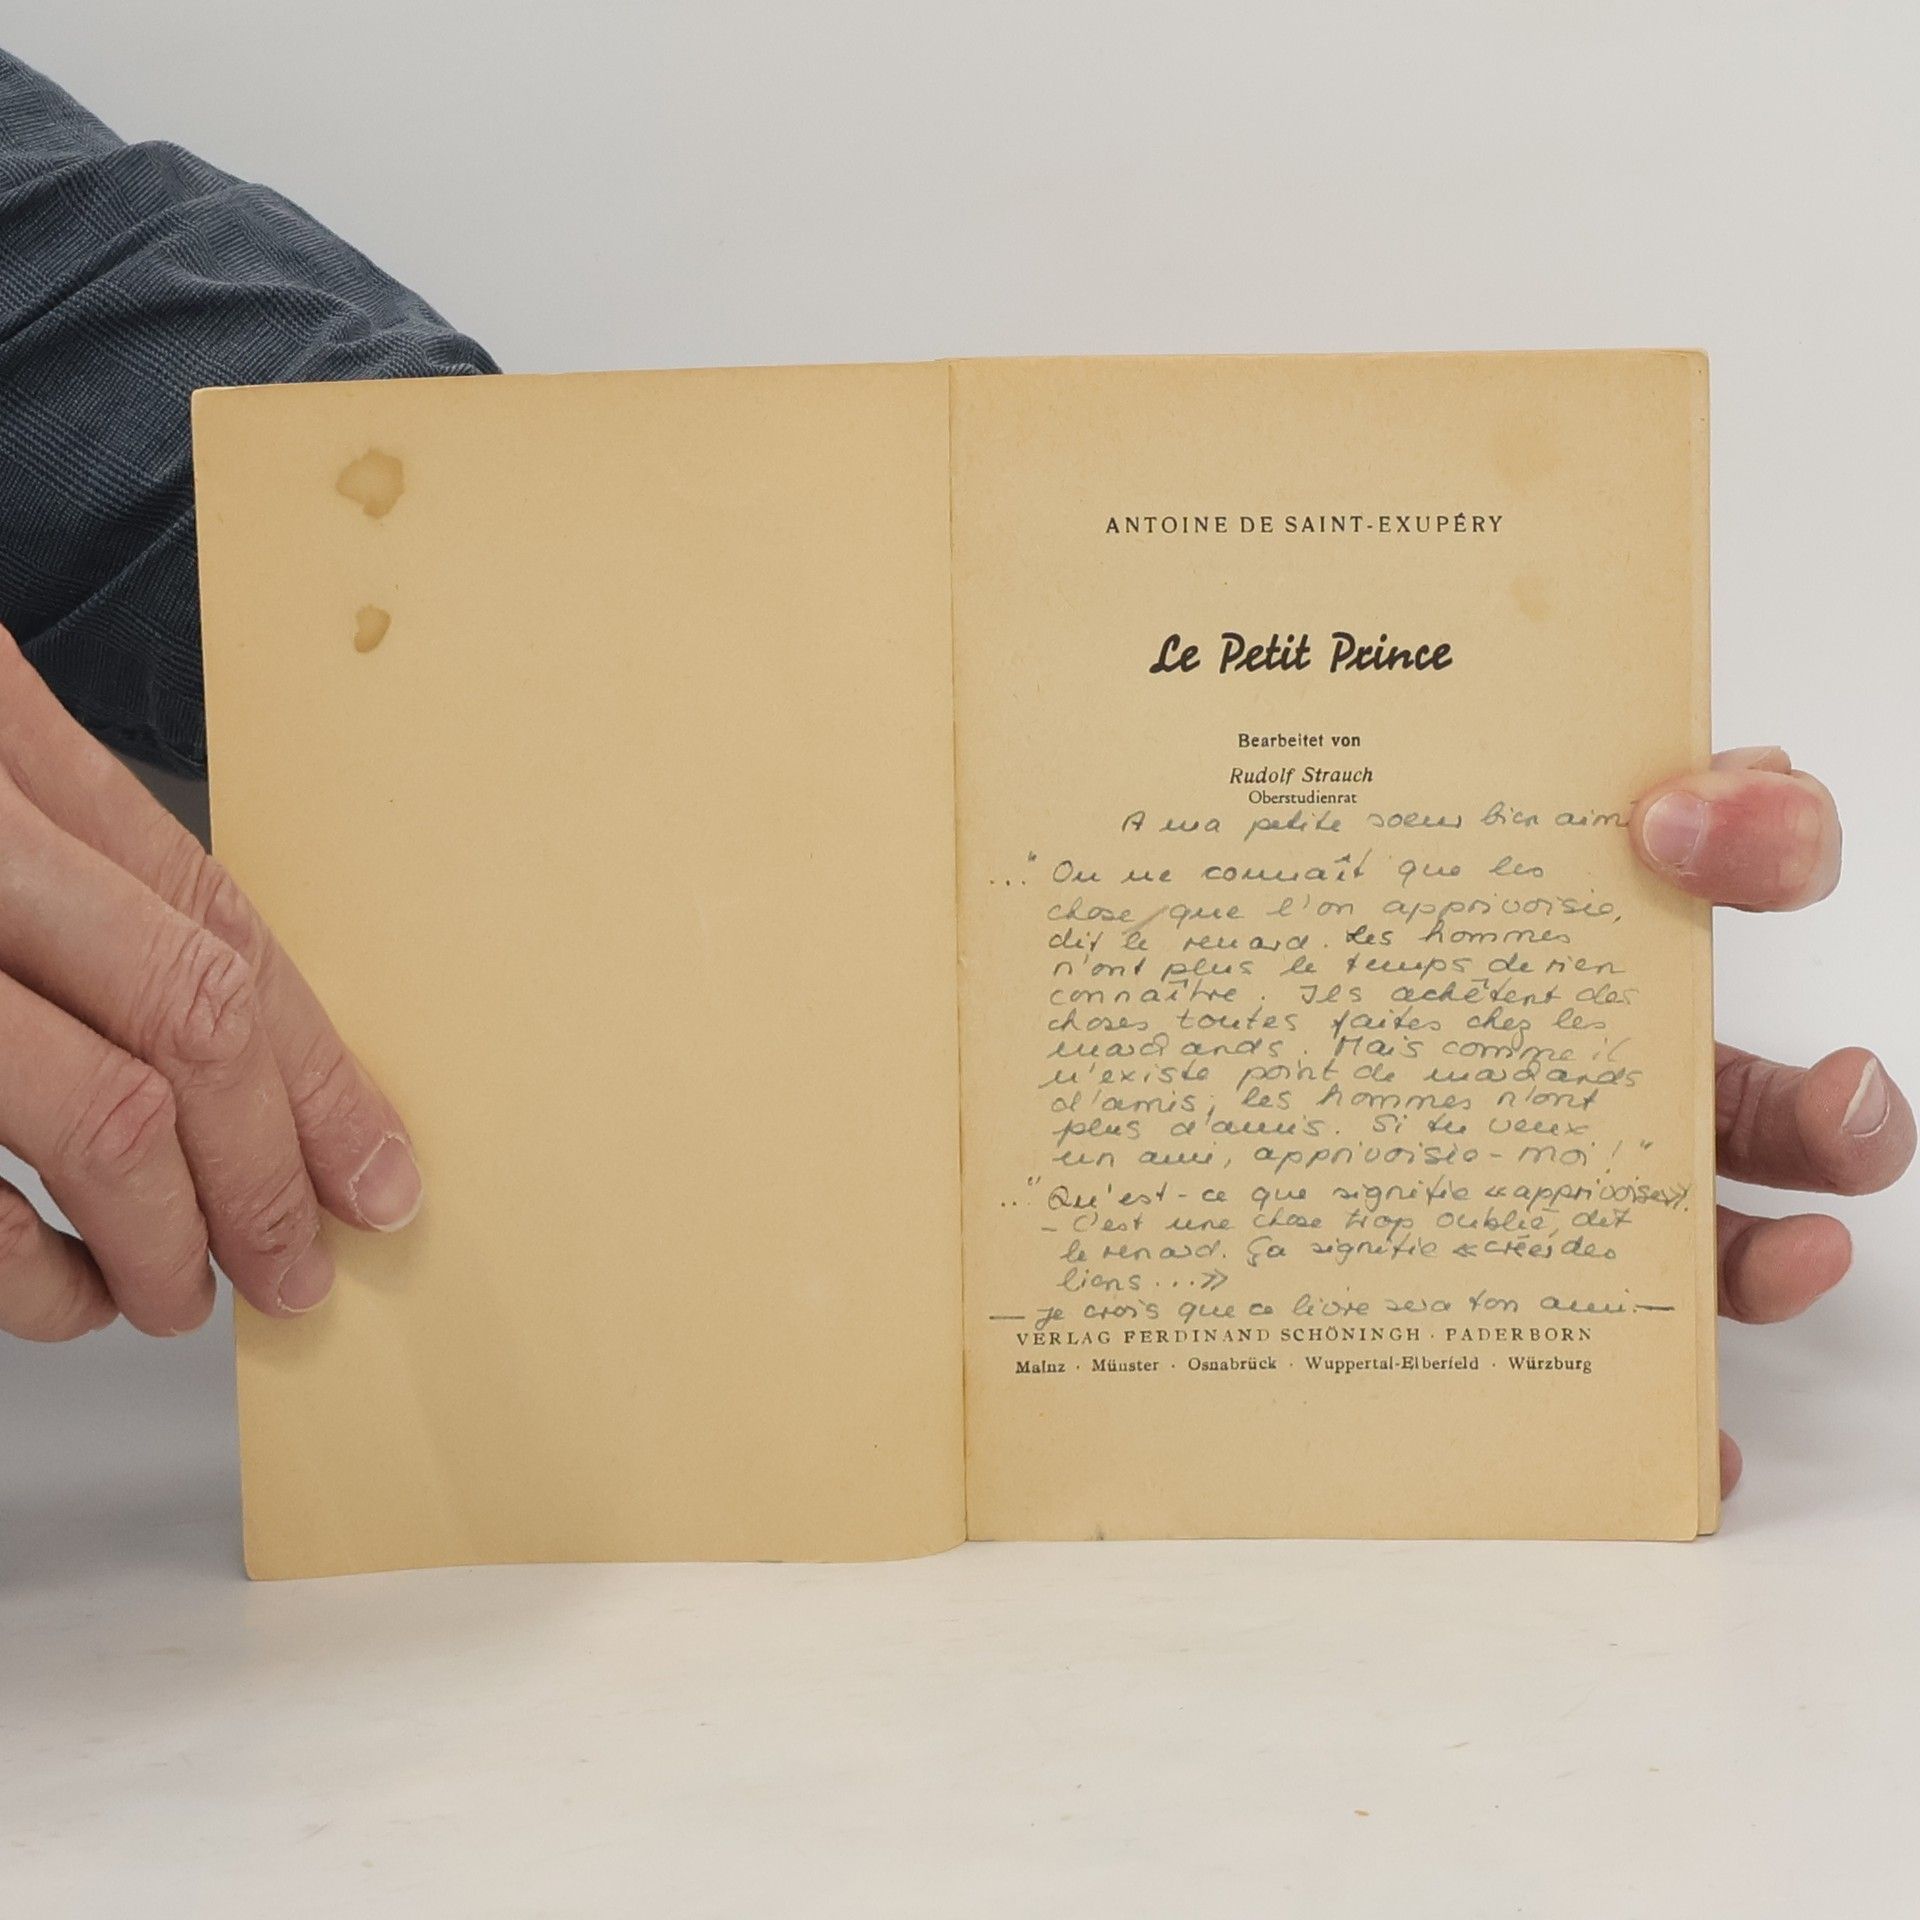 ANTOINE DE SAINT-EXUPÉRY
Le Petit Prince
Bearbeitet von
Rudolf Strauch
Oberstudienrat
A ma petite soeur bien
..." On ne connaît que les
chose que l'on apprivoisie,
dit le renard. Les hommes
n'ont plus le temps de rien
connaître. Ils achètent des
choses toutes faites chez les
marchands. Mais comme il
n'existe point de marchands
d'amis, les hommes n'ont
plus d'amis. Si tu veux
un ami, apprivoisie-moi!"
..." Qu'est-ce que signifie «apprivoiser».
- C'est une chose trop oublié, dit
le renard. Ça signifie «créer des
liens...»
— Je crois que ce livre sera ton ami. —
VERLAG FERDINAND SCHÖNINGH · PADERBORN
Mainz · Münster · Osnabrück · Wuppertal-Elberfeld · Würzburg